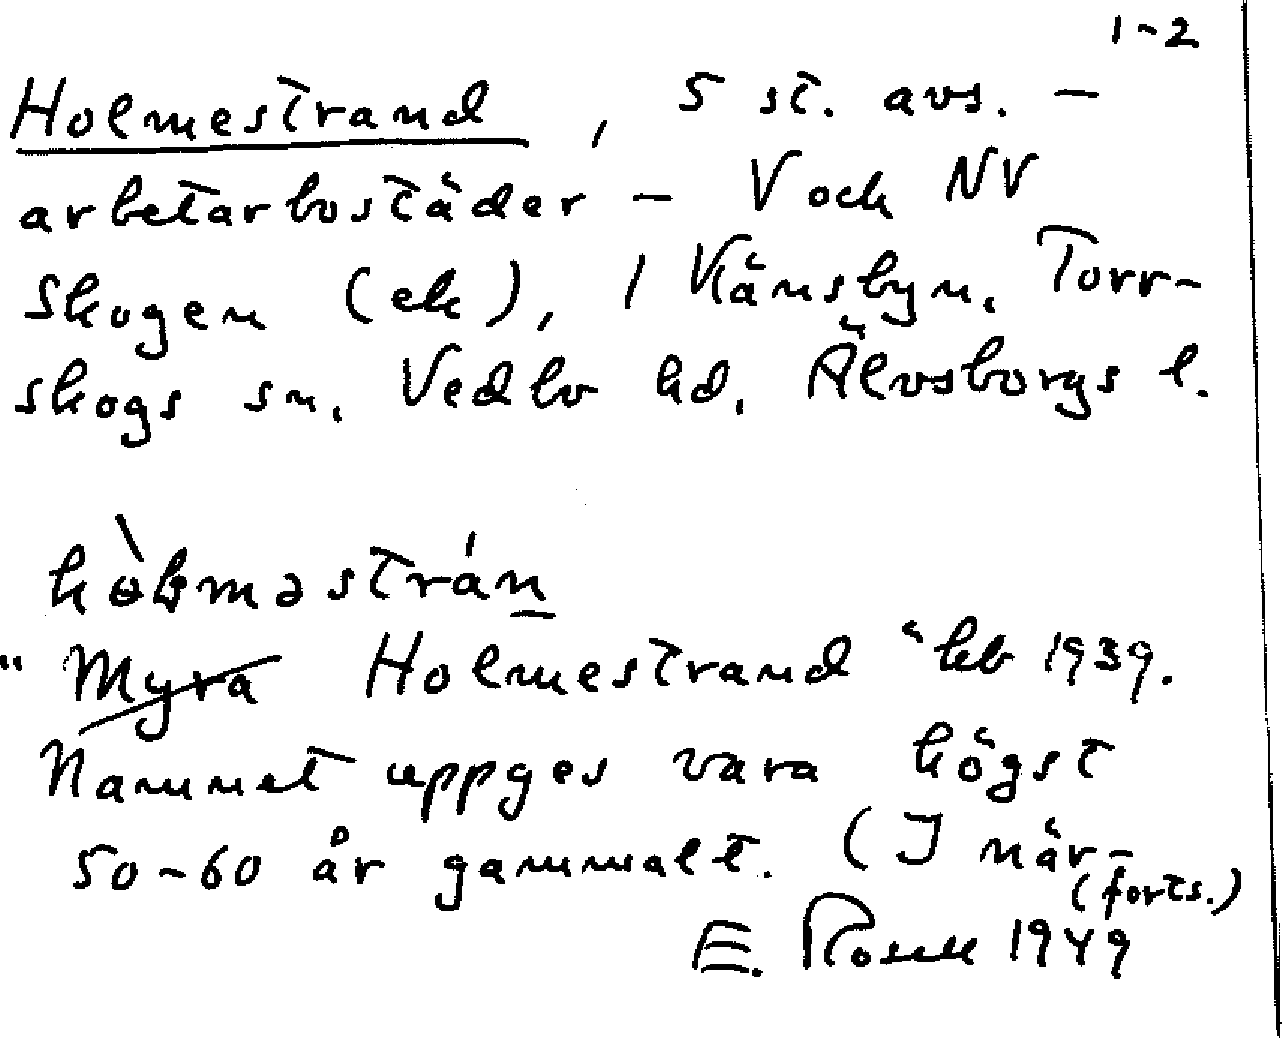 1-2
Holmestrand, 5 st. avs. –
arbetarbostäder – V och NV
Skogen (ek), 1 Vänsbyn, Torr-
skogs sn. Vedbo hd. Älvsborgs l.
"Myra Holmestrand" kb 1939.
Namnet uppges vara högst
50-60 år gammalt. (I när-
(forts.)
E. Rosell 1949